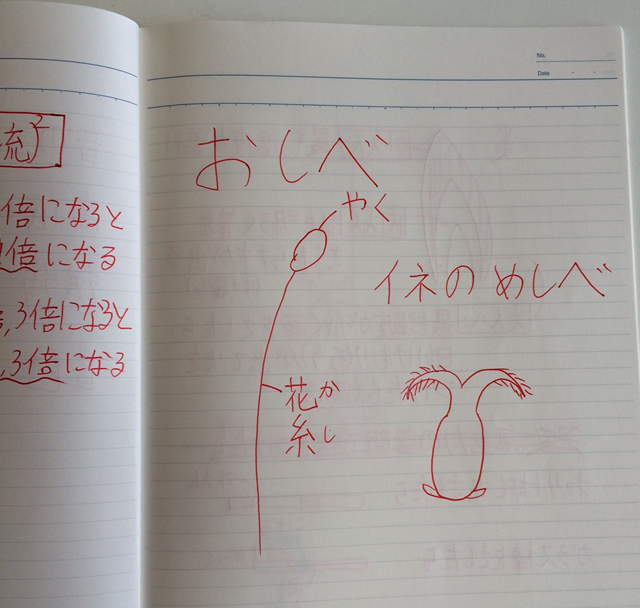 流²
倍になると
倍になる
,3倍になると
,3倍になる
No.
Date
おしべ
やく
イネの めしべ
花か
糸し